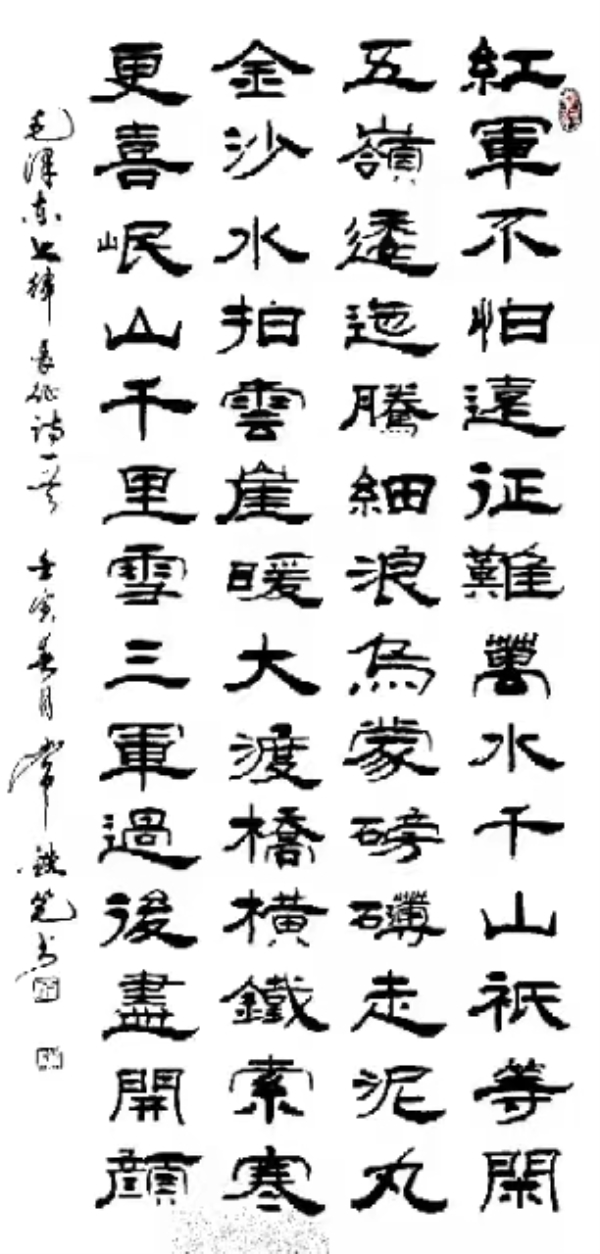 紅軍不怕遠征難萬水千山祇等閑
五嶺逶迤騰細浪烏蒙磅礴走泥丸
金沙水拍雲崖暖大渡橋橫鐵索寒
更喜岷山千里雪三軍過後盡開顔
毛澤东七律長征詩一首 壬寅春月常铁笔书